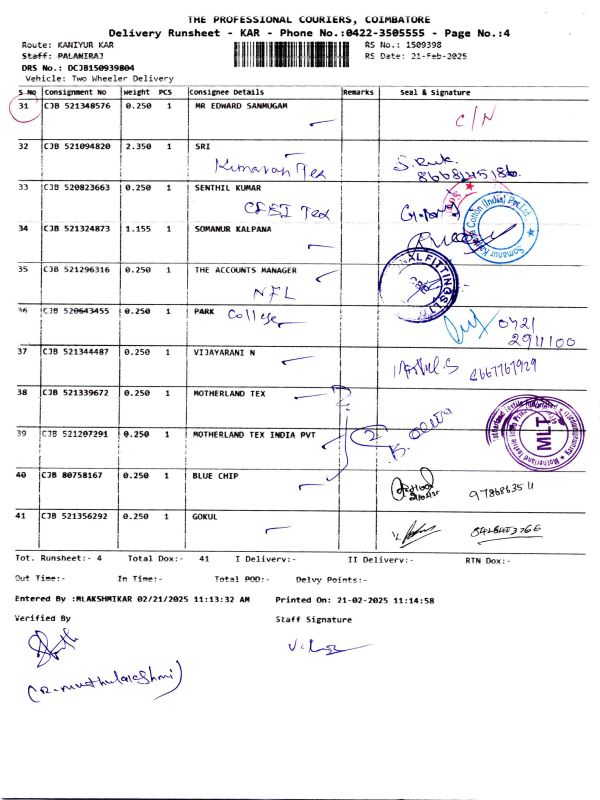 THE PROFESSIONAL COURIERS, COIMBATORE
Delivery Runsheet - KAR - Phone No.:0422-3505555 - Page No.:4
Route: KANIYUR KAR
RS No.: 1509398
Staff: PALANIRAJ
RS Date: 21-Feb-2025
DRS No.: DCJB150939804
Vehicle: Two Wheeler Delivery
S.No Consignment No Weight PCS Consignee Details Remarks Seal & Signature
31 CJB 521348576 0.250 1 MR EDWARD SANMUGAM C/N
32 CJB 521094820 2.350 1 SRI
Kumaran Tex
33 CJB 520823663 0.250 1 SENTHIL KUMAR
Tex
34 CJB 521324873 1.155 1 SOMANUR KALPANA
Somanur Kalpana Cotton (India) Pvt Ltd.
35 CJB 521296316 0.250 1 THE ACCOUNTS MANAGER
NFL
36 CJB 520643455 0.250 1 PARK College
0421
37 CJB 521344487 0.250 1 VIJAYARANI N
38 CJB 521339672 0.250 1 MOTHERLAND TEX
39 CJB 521207291 0.250 1 MOTHERLAND TEX INDIA PVT
2
MLT
40 CJB 80758167 0.250 1 BLUE CHIP
41 CJB 521356292 0.250 1 GOKUL
Tot. Runsheet:- 4 Total Dox:- 41 I Delivery:- II Delivery:- RTN Dox:-
Out Time:- In Time:- Total POD:- Delvy Points:-
Entered By :MLAKSHMIKAR 02/21/2025 11:13:32 AM Printed On: 21-02-2025 11:14:58
Verified By Staff Signature
(R.muthulakshmi)